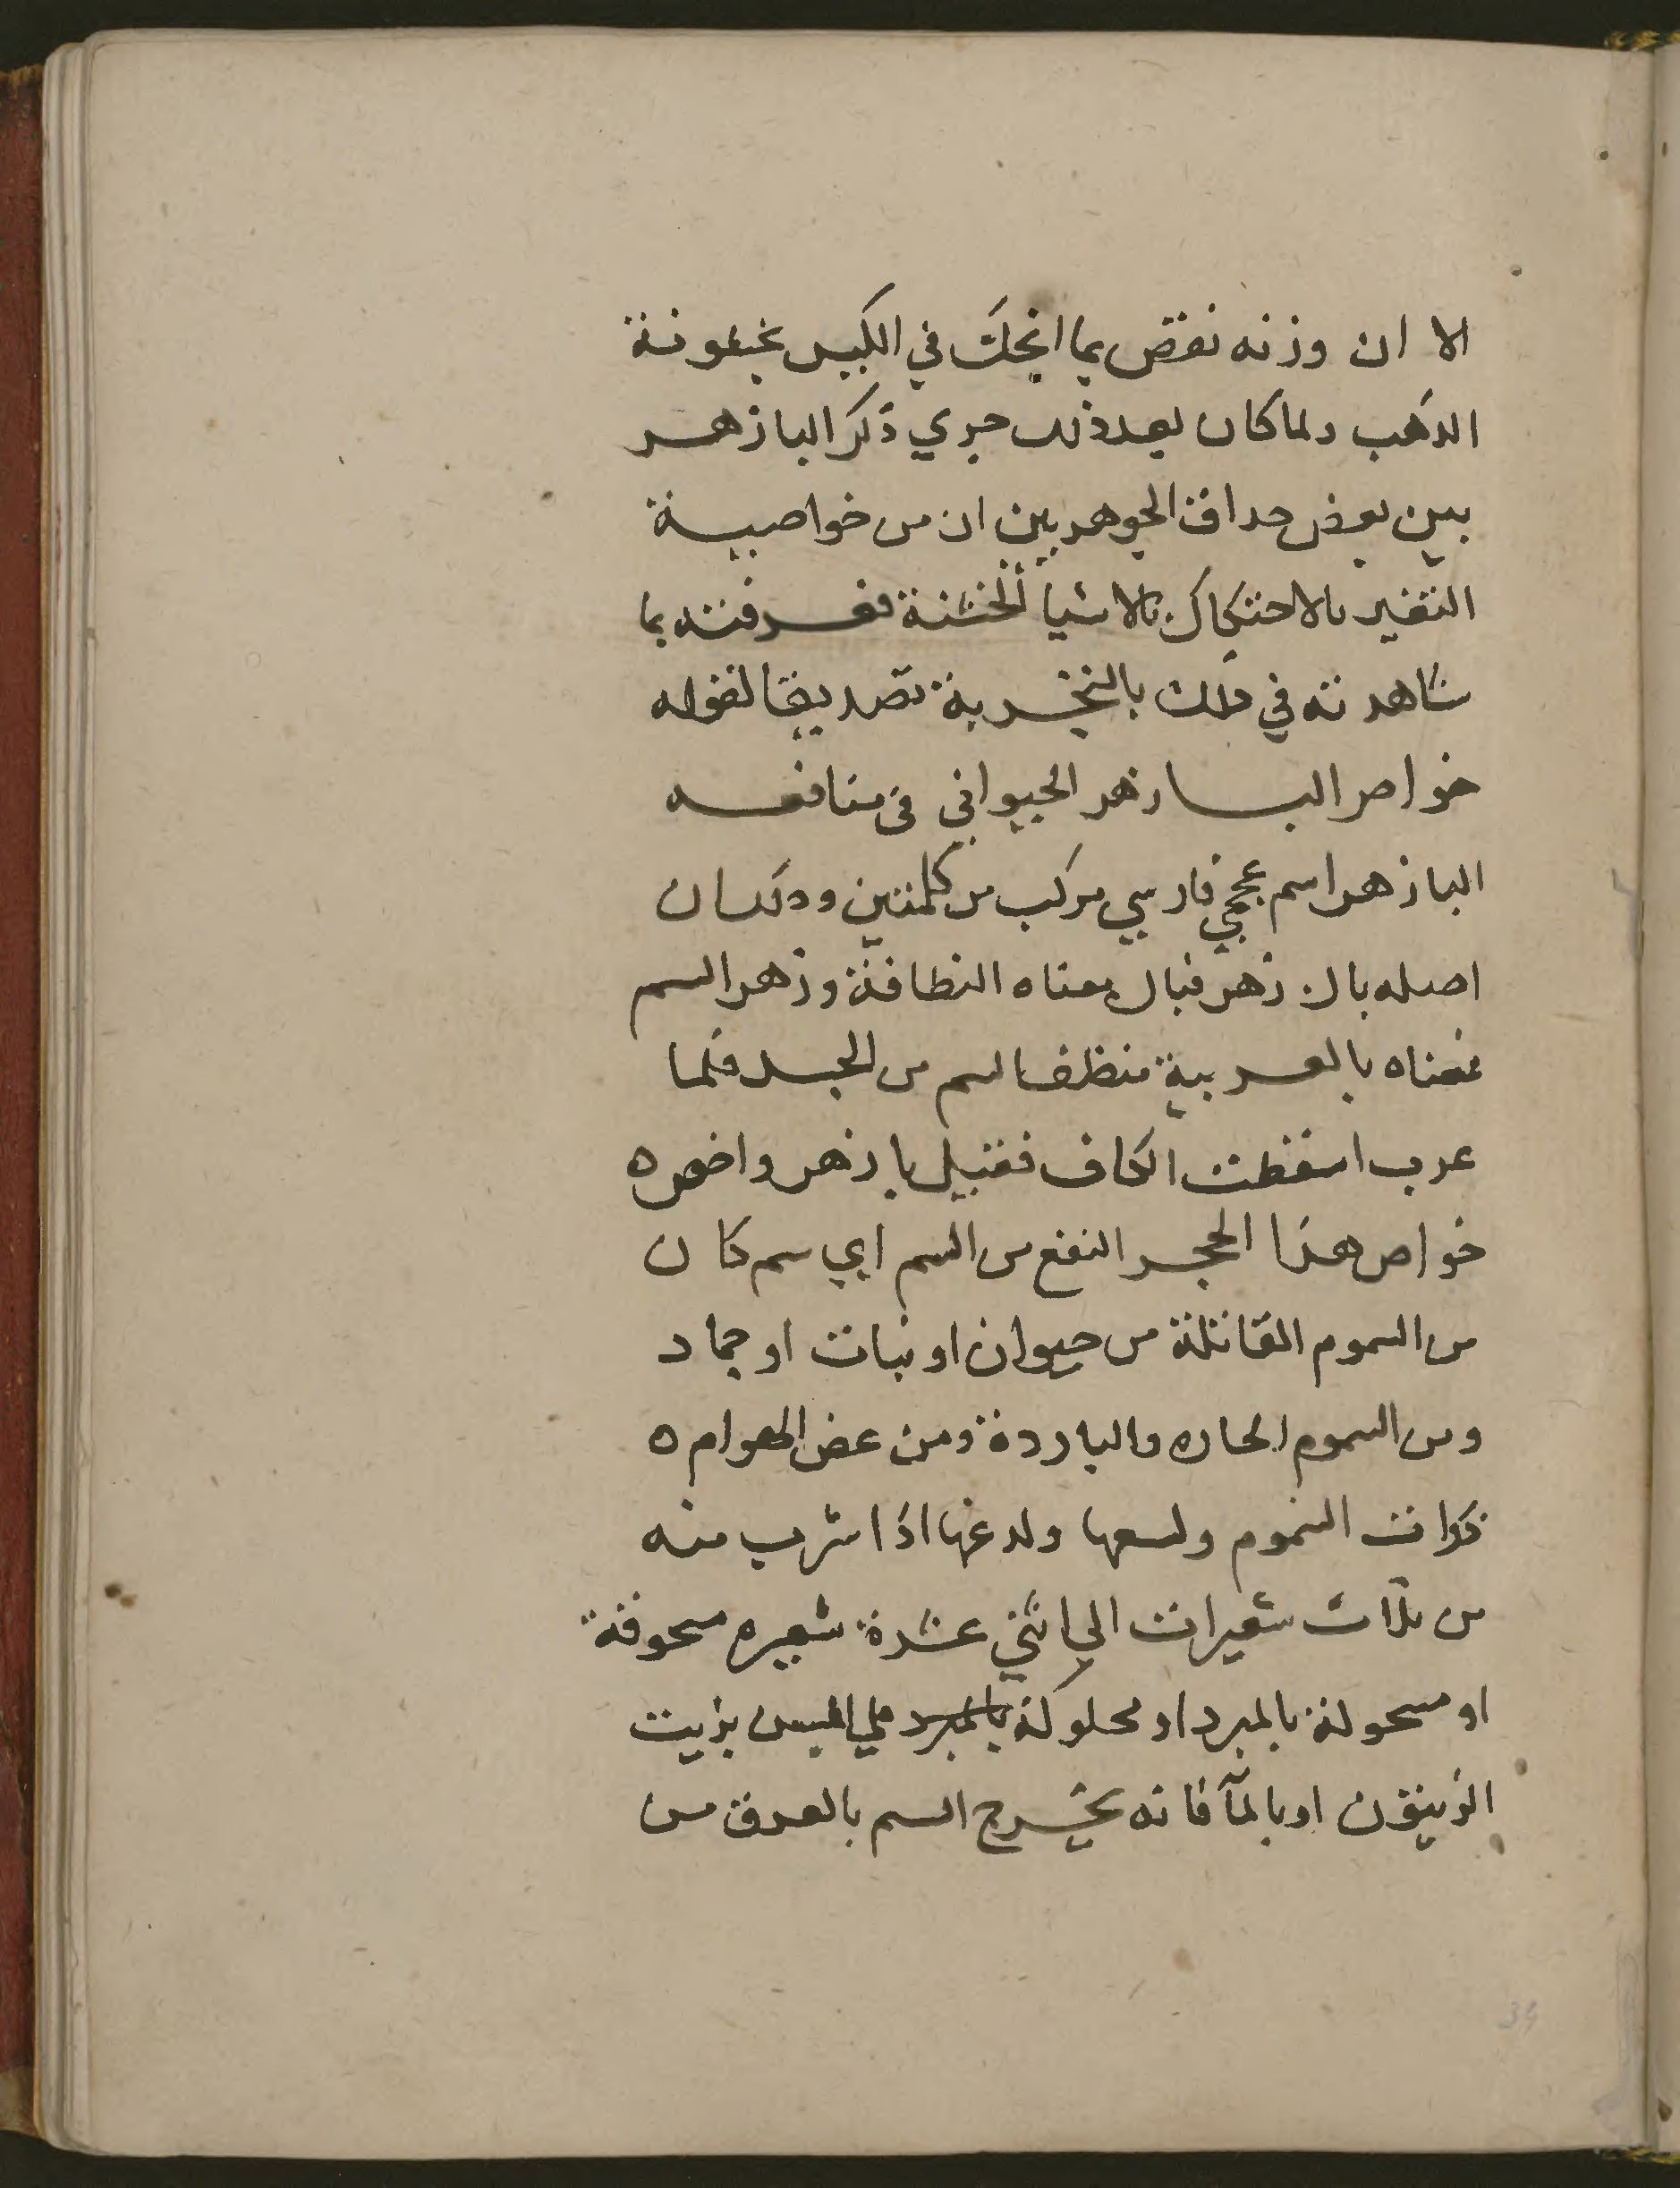 الا ان وزنه نقص بما انحك في الكيس بخشونة
الذهب ولما كان بعد ذلك جري ذكر البازهر
بين بعض حداق الجوهريين ان من خواصيه
التغير بالاحتكاك بالاشيا الخشنة فعرفته بما
شاهدته في ذلك بالتجربة تصديقا لقوله
خواص البازهر الحيواني في منافعه
البازهر اسم عجمي فارسي مركب من كلمتين وذلك ان
اصله باك زهر فباك معناه النظافة وزهر السم
فمعناه بالعربية منظف السم من الجسد فلما
عرب اسقطت الكاف فقيل بازهر واخص ه
خواص هذا الحجر النفع من السم اي سم كان
من السموم القاتلة من حيوان او نبات او جماد
ومن السموم الحاره والباردة ومن عض الهوام ه
ذوات السموم ولسعها ولدغها اذا شرب منه
من ثلاث شعيرات الي اثني عشرة شعيره مسحوقة
او مسحولة بالمبرد او محلوكة بالمبرد علي المسن بزيت
الزيتون او بالمآ فانه يخرج السم بالعرق من
34